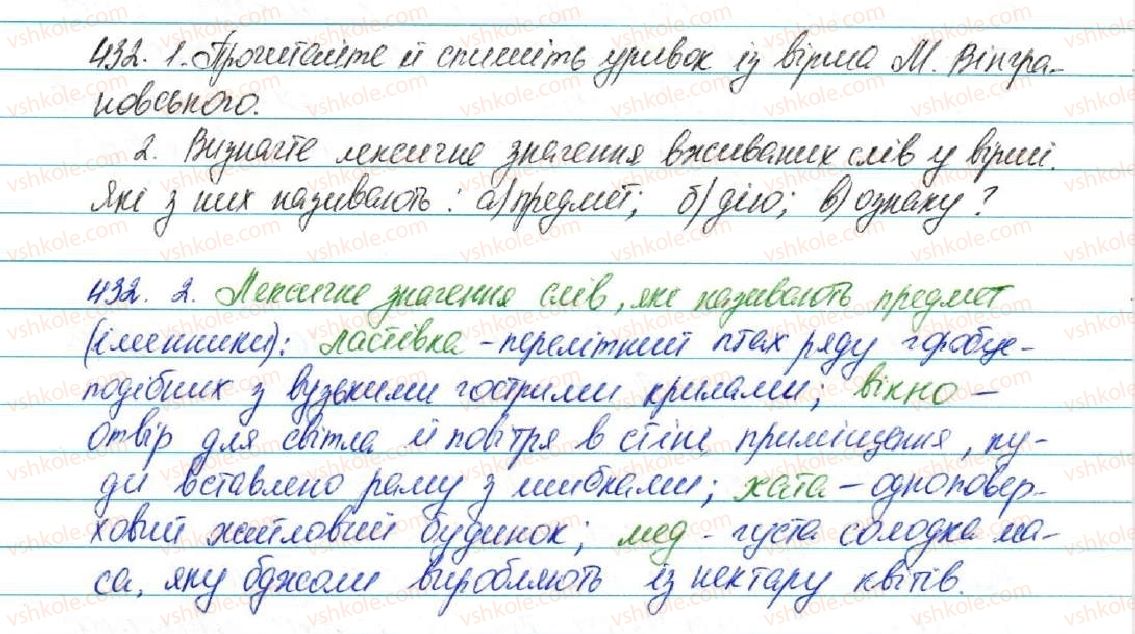 432. 1. Прочитайте й спишіть уривок із вірша М. Вінгра-
новського.
2. Визначте лексичне значення вживаних слів у вірші.
Які з них називають: а) предмет; б) дію; в) ознаку?
432. 2. Лексичне значення слів, які називають предмет
(іменники): ластівка - перелітний птах ряду горобце-
подібних з вузькими гострими крилами; вікно -
отвір для світла й повітря в стіні приміщення, ку-
ди вставлено раму з шибками; хата - одноповер-
ховий житловий будинок; мед - густа солодка ма-
са, яку бджоли виробляють із нектару квітів.